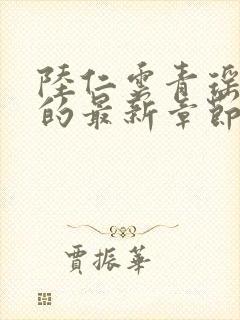 陸仁雲青瑶
的最新章節
賈振華